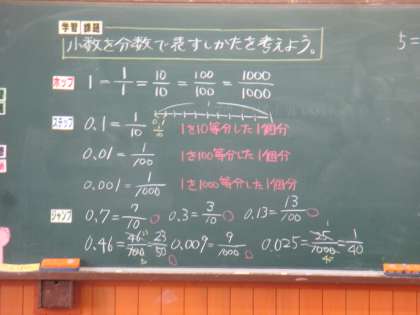 学習課題
小数を分数で表すしかたを考えよう。
5=
ホップ 1 = 1/1 = 10/10 = 100/100 = 1000/1000
1
ステップ 0.1 = 1/10 0.1 1/10 1を10等分した1個分
0.01 = 1/100 1を100等分した1個分
0.001 = 1/1000 1を1000等分した1個分
ジャンプ 0.7 = 7/10 0.3 = 3/10 0.13 = 13/100
0.46 = 46/100 = 23/50 0.009 = 9/1000 0.025 = 25/1000 = 1/40